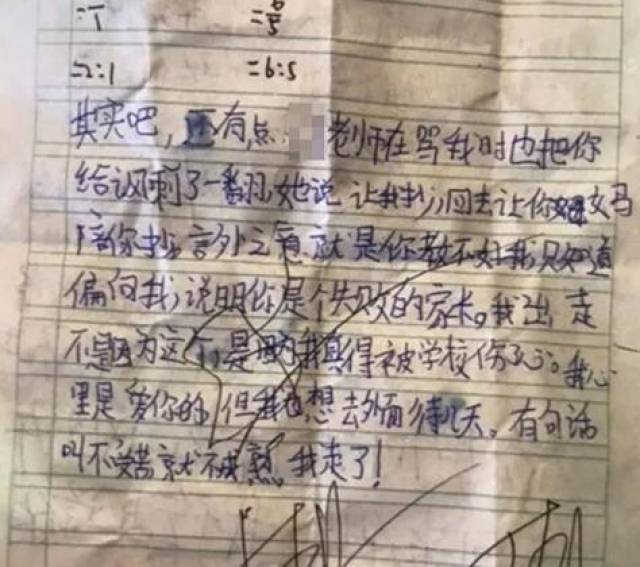 =1 =6/5
=2:1 =6:5
其实吧,还有点 老师在骂我时也把你
给讽刺了一翻,她说让我抄,回去让你妈
陪你抄言外之意就是你教不好我只知道
偏向我,说明你是个失败的家长。我出走
不是因为这个,是因为我真得被学校伤了心。我心
里是爱你的,但我也想去外面待几天。有句话
叫不受苦就不成熟。我走了!